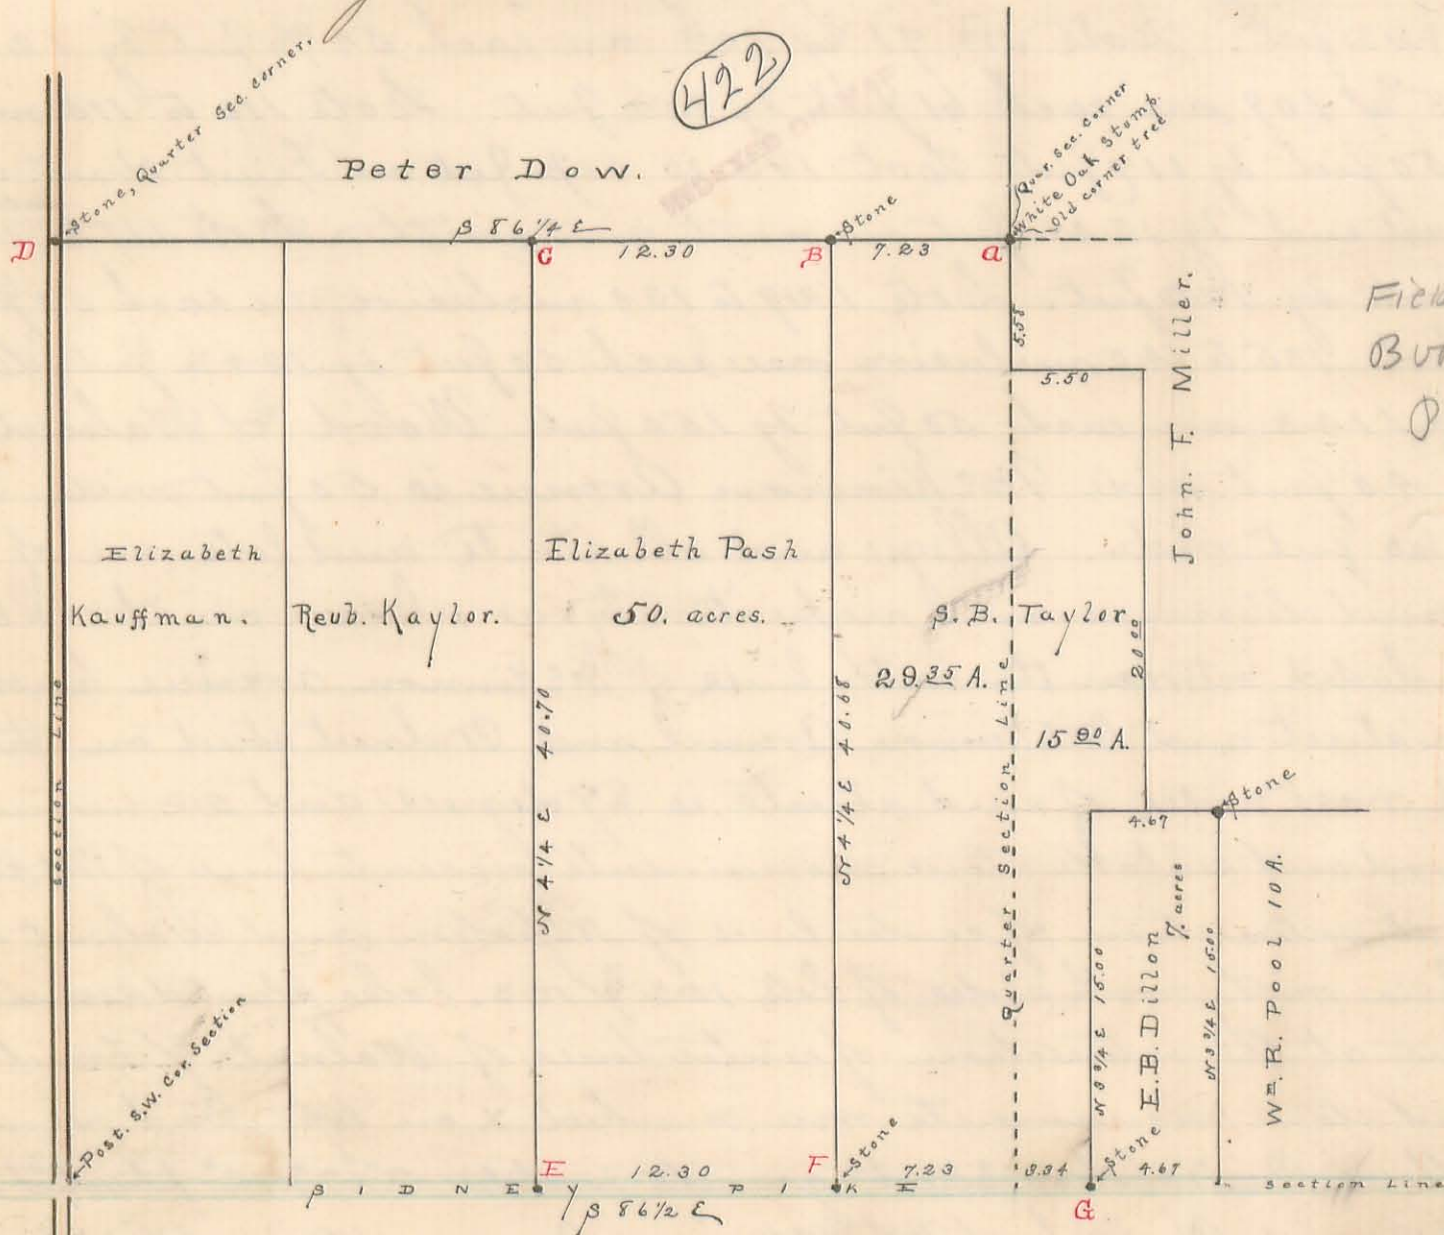 422
Stone, Quarter Sec. corner,
Quar. Sec. Corner
White Oak Stump.
Old corner tree
Peter Dow.
Stone
D
S 86 1/4 E
C
12.30
B
7.23
a
5.58
5.50
John. F. Miller.
Field
Elizabeth
Kauffman.
Reub. Kaylor.
Elizabeth Pash
50. acres.
S. B. Taylor
29.35 A.
15 90 A.
20 00
Section Line
N 4 1/4 E 40.70
N 4 1/4 E 40.68
Quarter - Section Line
4.67
Stone
N 3 3/4 E 15.00
E. B. Dillon
7. acres
N 3 3/4 E 15.00
Wm. R. Pool 10 A.
Post. S.W. Cor. Section
E
12.30
F
Stone
7.23
3.34
Stone
4.67
SIDNEY PIKE
Section Line
S 86 1/2 E
G